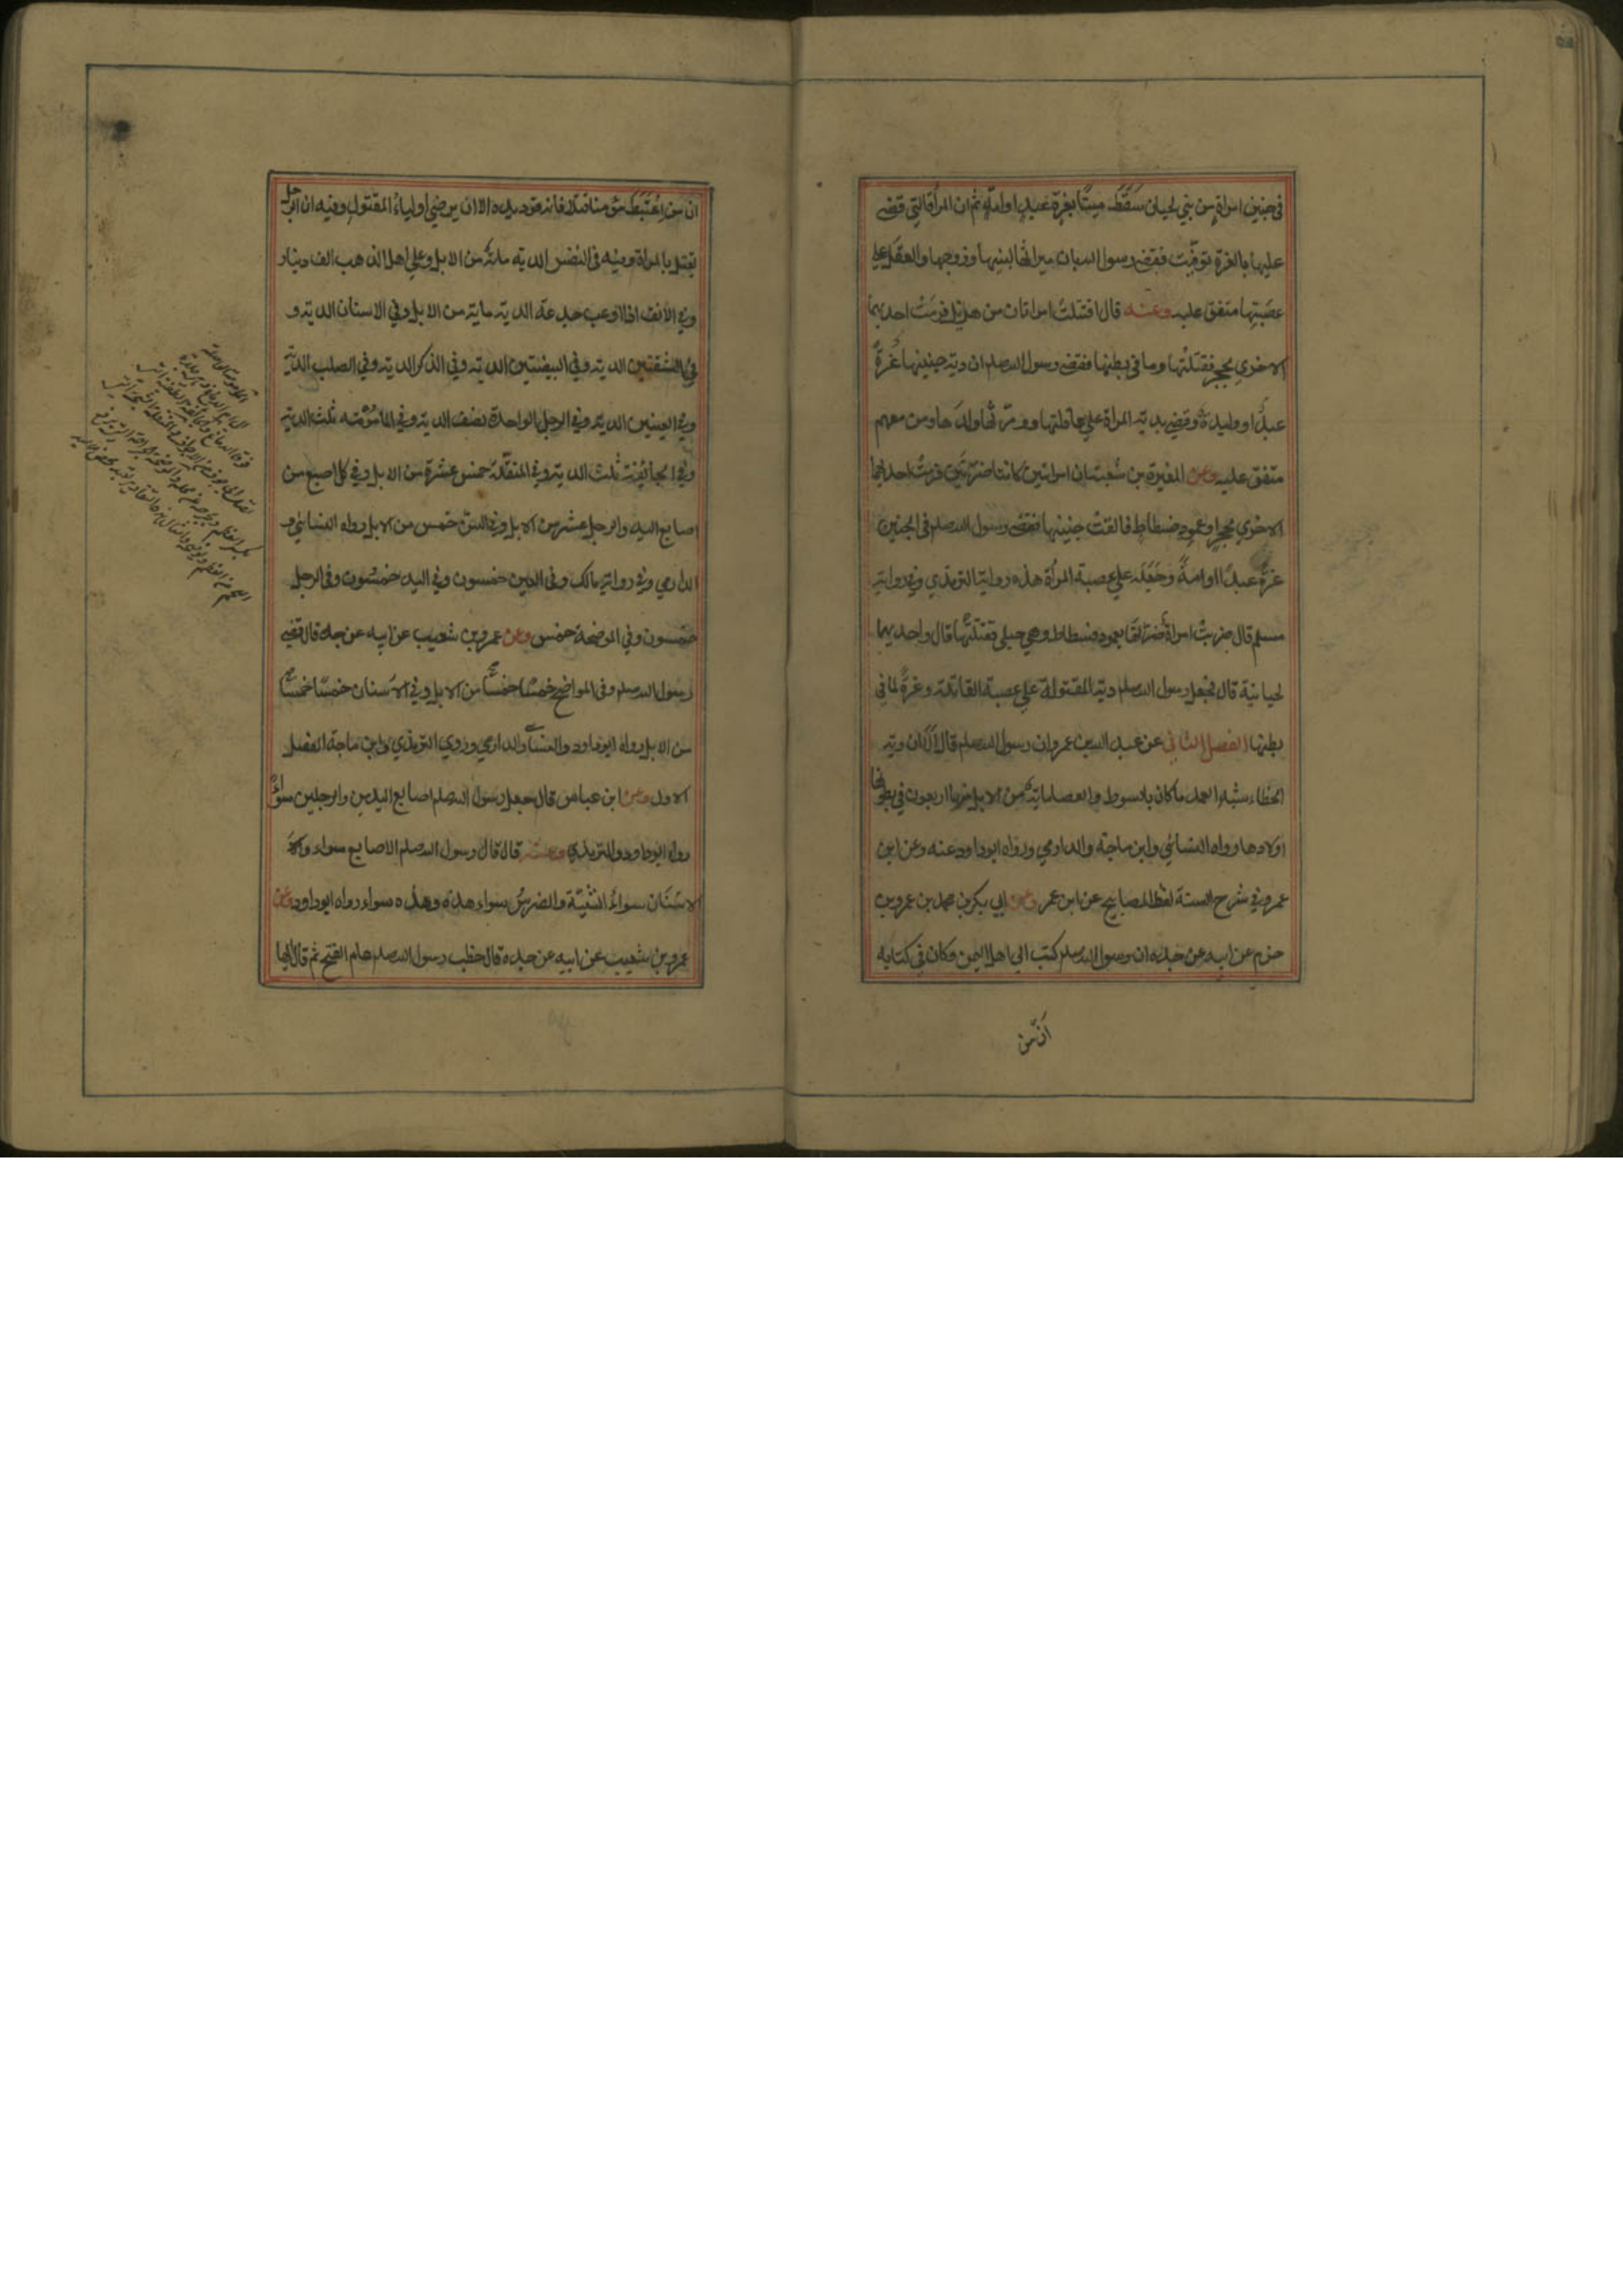 في جنين امراة من بني لحيان سَقَطَ ميتًا بغرة عبدٍ او امةٍ ثم ان المراة التي قضى
عليها بالغرة توفيت فقضى رسول الله بان ميراثها لبنيها وزوجها والعقل على
عصبتها متفق عليه وعنه قال اقتتلت امراتان من هذيل فرمت احديهما
الاخري بحجر فقتلتها وما في بطنها فقضى رسول الله صلعم ان دية جنينها غُرةٌ
عبدٌ او وليدة وقضى بدية المراة على عاقلتها وورثها ولدها ومن معهم
متفق عليه وعن المغيرة بن شعبة ان امراتين كانتا ضرتين فرمت احديهما
الاخري بحجرٍ او عمود فسطاطٍ فالقت جنينها فقضى رسول الله صلعم في الجنين
غرةً عبدًا او امةً وجَعَلَه على عصبة المرأة هذه رواية الترمذي وفي رواية
مسلم قال ضربت امراةٌ ضرتها بعمود فسطاط وهي حبلى فقتلتها قال واحديهما
لحيانية قال فجعل رسول الله صلعم دية المقتولة على عصبة القاتلة وغرةً لما في
بطنها الفصل الثاني عن عبد الله بن عمرو ان رسول الله صلعم قال الا ان دية
الخطاء شبه العمد ما كان بالسوط والعصا ماية من الابل منها اربعون في بطونها
اولادها رواه النسائي وابن ماجة والدارمي ورواه ابوداود عنه وعن ابن
عمر وفي شرح السنة لفظ المصابيح عن ابن عمر وعن ابي بكر بن محمد بن عمرو بن
حزم عن ابيه عن جده ان رسول الله صلعم كتب الى اهل اليمن وكان في كتابه
اَنّ من
ان من اِعْتَبَطَ مؤمنا قتلا فانه قود يده الا ان يرضي اولياءُ المقتول وفيه ان الرجل
يقتل بالمراة وفيه في النفس الدية ماية من الابل وعلى اهل الذهب الف دينار
وفي الانف اذا اوعب جدعه الدية ماية من الابل وفي الاسنان الدية و
في الشفتين الدية وفي البيضتين الدية وفي الذكر الدية وفي الصلب الدية
وفي العينين الدية وفي الرجل الواحدة نصف الدية وفي المأمومة ثلث الدية
وفي الجائفة ثلث الدية وفي المنقلة خمس عشرة من الابل وفي كل اصبع من
اصابع اليد والرجل عشر من الابل وفي السن خمس من الابل رواه النسائي و
الدارمي وفي رواية مالك وفي العين خمسون وفي اليد خمسون وفي الرجل
خمسون وفي الموضحة خمس وعن عمرو بن شعيب عن ابيه عن جده قال قضى
رسول الله صلعم وفي المواضح خمسًا خمسًا من الابل وفي الاسنان خمسًا خمسًا
من الابل رواه ابوداود والنسائي والدارمي وروي الترمذي وابن ماجة الفصل
الاول وعن ابن عباس قال جعل رسول الله صلعم اصابع اليدين والرجلين سواءً
رواه ابوداود والترمذي وعنه قال قال رسول الله صلعم الاصابع سواء و
الاسنان سواءٌ الثنيّة والضرسُ سواء هذه وهذه سواء رواه ابوداود وعن
عمرو بن شعيب عن ابيه عن جده قال خطب رسول الله صلعم عام الفتح ثم قال ايها